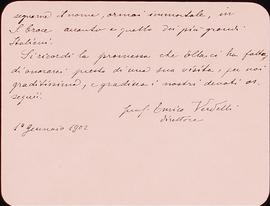 segnare il nome, ormai immortale, in
S. Croce accanto a quello dei più grandi
Italiani.
Si ricordi la promessa che Ella ci ha fatta,
di onorarci presto di una sua visita, per noi
graditissima, e gradisca i nostri devoti os-
sequii.
prof. Enrico Verdelli
direttore
1º Gennaio 1902